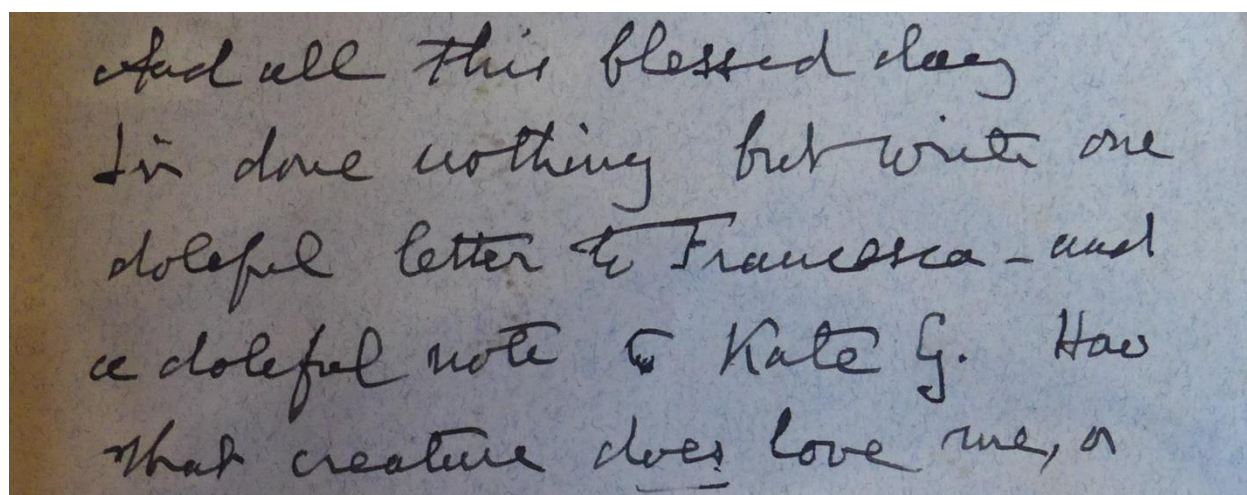 And all this blessed day
I've done nothing but write one
doleful letter to Francesca - and
a doleful note to Kate G. How
that creature does love me, or